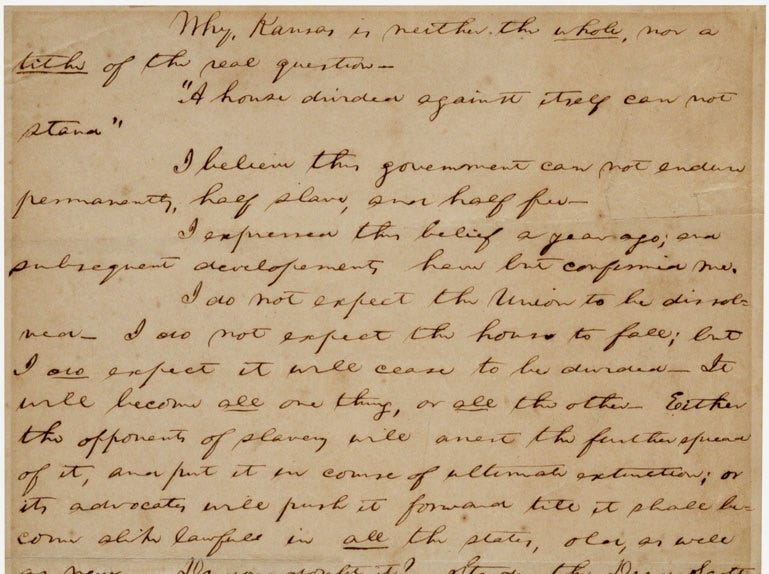 Why, Kansas is neither the whole, nor a
tithe of the real question—
"A house divided against itself can not
stand"
I believe this government can not endure
permanently, half slave, and half free—
I expressed this belief a year ago; and
subsequent developements have but confirmed me.
I do not expect the Union to be dissol-
ved— I do not expect the house to fall; but
I do expect it will cease to be divided— It
will become all one thing, or all the other— Either
the opponents of slavery will arrest the further spread
of it, and put it in course of ultimate extinction; or
its advocates will push it forward till it shall be-
come alike lawfull in all the states, old, as well
as new. Do you doubt it? Study the Dred Scott